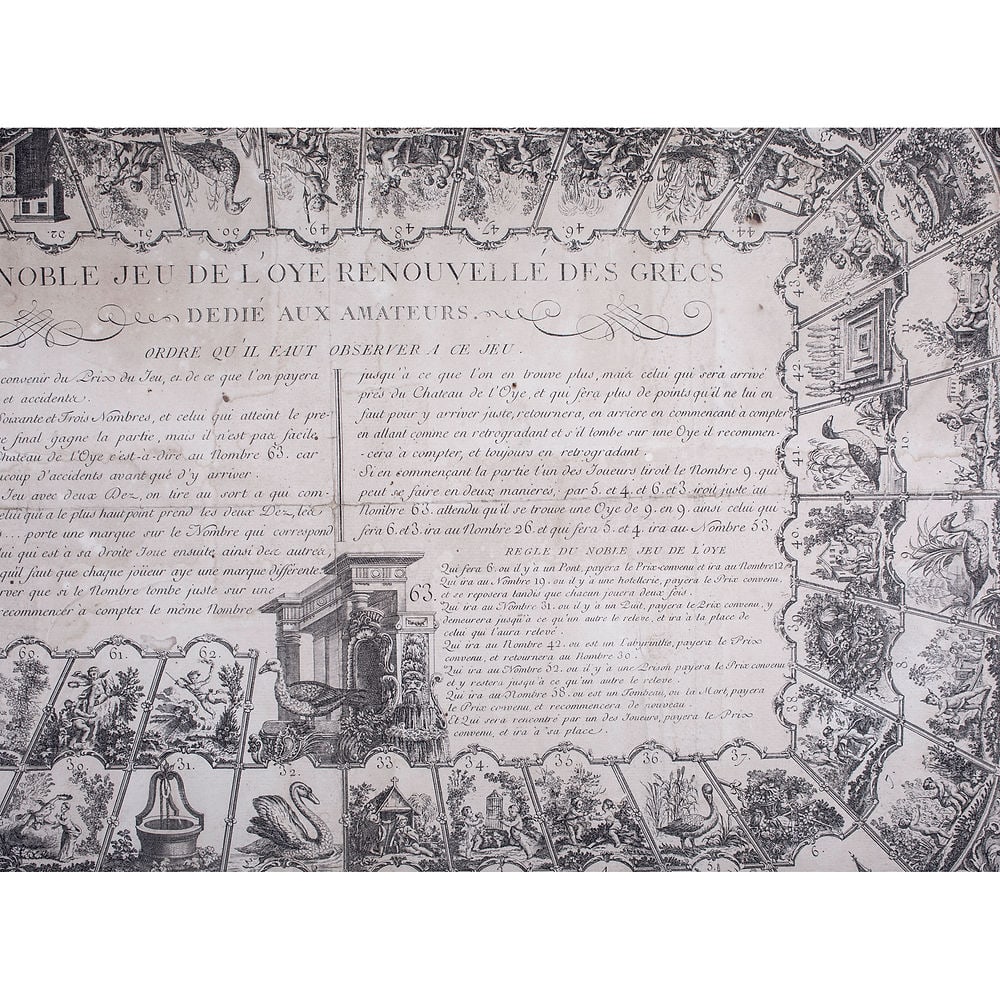 NOBLE JEU DE L'OYE RENOUVELLÉ DES GRECS
DEDIÉ AUX AMATEURS.
ORDRE QU'IL FAUT OBSERVER A CE JEU.
convenir du Prix du Jeu, et de ce que l'on payera
et accidents.
Soixante et Trois Nombres, et celui qui atteint le pre-
final gagne la partie, mais il n'est pas facile
Chateau de l'Oye c'est-à-dire au Nombre 63. car
ucoup d'accidents avant qué d'y arriver.
Jeu avec deux Dez, on tire au sort a qui com-
elui qui a le plus haut point prend les deux Dez, les
porte une marque sur le Nombre qui correspond
lui qui est a sa droite Joue ensuite, ainsi dez autres
qu'il faut que chaque joüeur aye une marque differente.
rver que si le Nombre tombe juste sur une
recommencer a compter le même Nombre
jusqu'a ce que l'on en trouve plus, mais celui qui sera arrivé
près du Chateau de l'Oye, et qui fera plus de points qu'il ne lui en
faut pour y arriver juste, retournera, en arriere en commencant a compter
en allant comme en retrogradant et s'il tombe sur une Oye il recommen-
cera a compter, et toujours en retrogradant.
Si en commençant la partie l'un des Joueurs tiroit le Nombre 9. qui
peut se faire en deux manieres; par 5. et 4. et 6. et 3. iroit juste au
Nombre 63. attendu qu'il se trouve une Oye de 9. en 9. ainsi celui qui
fera 6. et 3. ira au Nombre 26. et qui fera 5. et 4. ira au Nombre 53.
REGLE DU NOBLE JEU DE L'OYE
Qui fera 6. ou il y'a un Pont, payera le Prix convenu et ira au Nombre 12.
Qui ira au Nombre 19. ou il y'a une hotellerie, payera le Prix convenu,
et se reposera tandis que chacun jouera deux fois.
Qui ira au Nombre 31. ou il y'a un Puit, payera le Prix convenu, y
demeurera jusqu'a ce qu'un autre le releve, et ira a la place de
celui qui l'aura relevé.
Qui ira au Nombre 42. ou est un Labyrinthe, payera le Prix
convenu, et retournera au Nombre 30.
Qui ira au Nombre 52. ou il y'a une Prison payera le Prix convenu
et y restera jusqu'à ce qu'un autre le releve.
Qui ira au Nombre 58. ou est un Tombeau, ou la Mort, payera
le Prix convenu, et recommencera de nouveau.
Et Qui sera rencontré par un des Joueurs, payera le Prix
convenu, et ira a sa place.
63.
52.
51.
50.
49.
48.
47.
46.
45.
44.
43.
42.
41.
40.
39.
38.
37.
36.
35.
34.
33.
32.
31.
30.
60.
61.
62.
12.
11.
10.
9.
8.
7.
6.